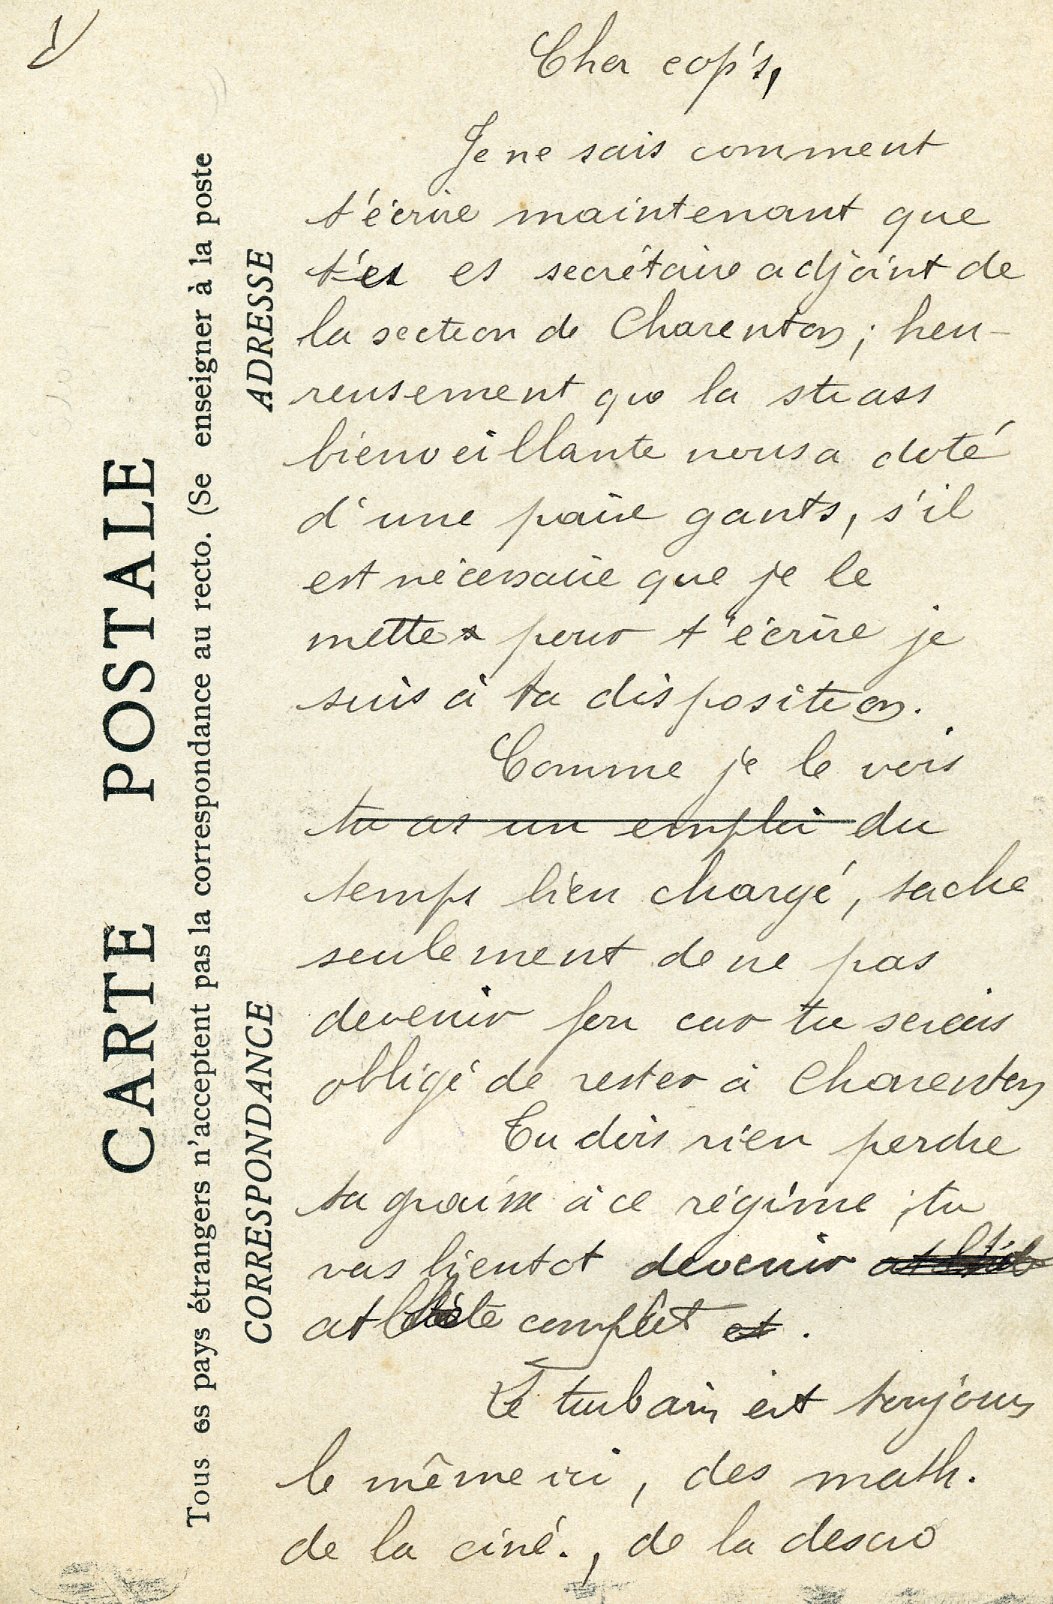 CARTE POSTALE
Tous es pays étrangers n'acceptent pas la correspondance au recto. (Se enseigner à la poste
CORRESPONDANCE ADRESSE
Cher cop's,
Je ne sais comment
t'écrire maintenant que
t'es es secrétaire adjoint de
la section de Charenton ; heu-
reusement que la strass
bienveillante nous a doté
d'une paire gants, s'il
est nécessaire que je le
mettes pour t'écrire je
suis à ta disposition.
Comme je le vois
tu as un emploi du
temps bien chargé, tache
seulement de ne pas
devenir fou car tu serais
obligé de rester à Charenton
Tu dois rien perdre
ta graisse à ce régime ; tu
vas bientot devenir
athlète complet et .
Le turbain est toujours
le même ici, des math.
de la ciné., de la descro